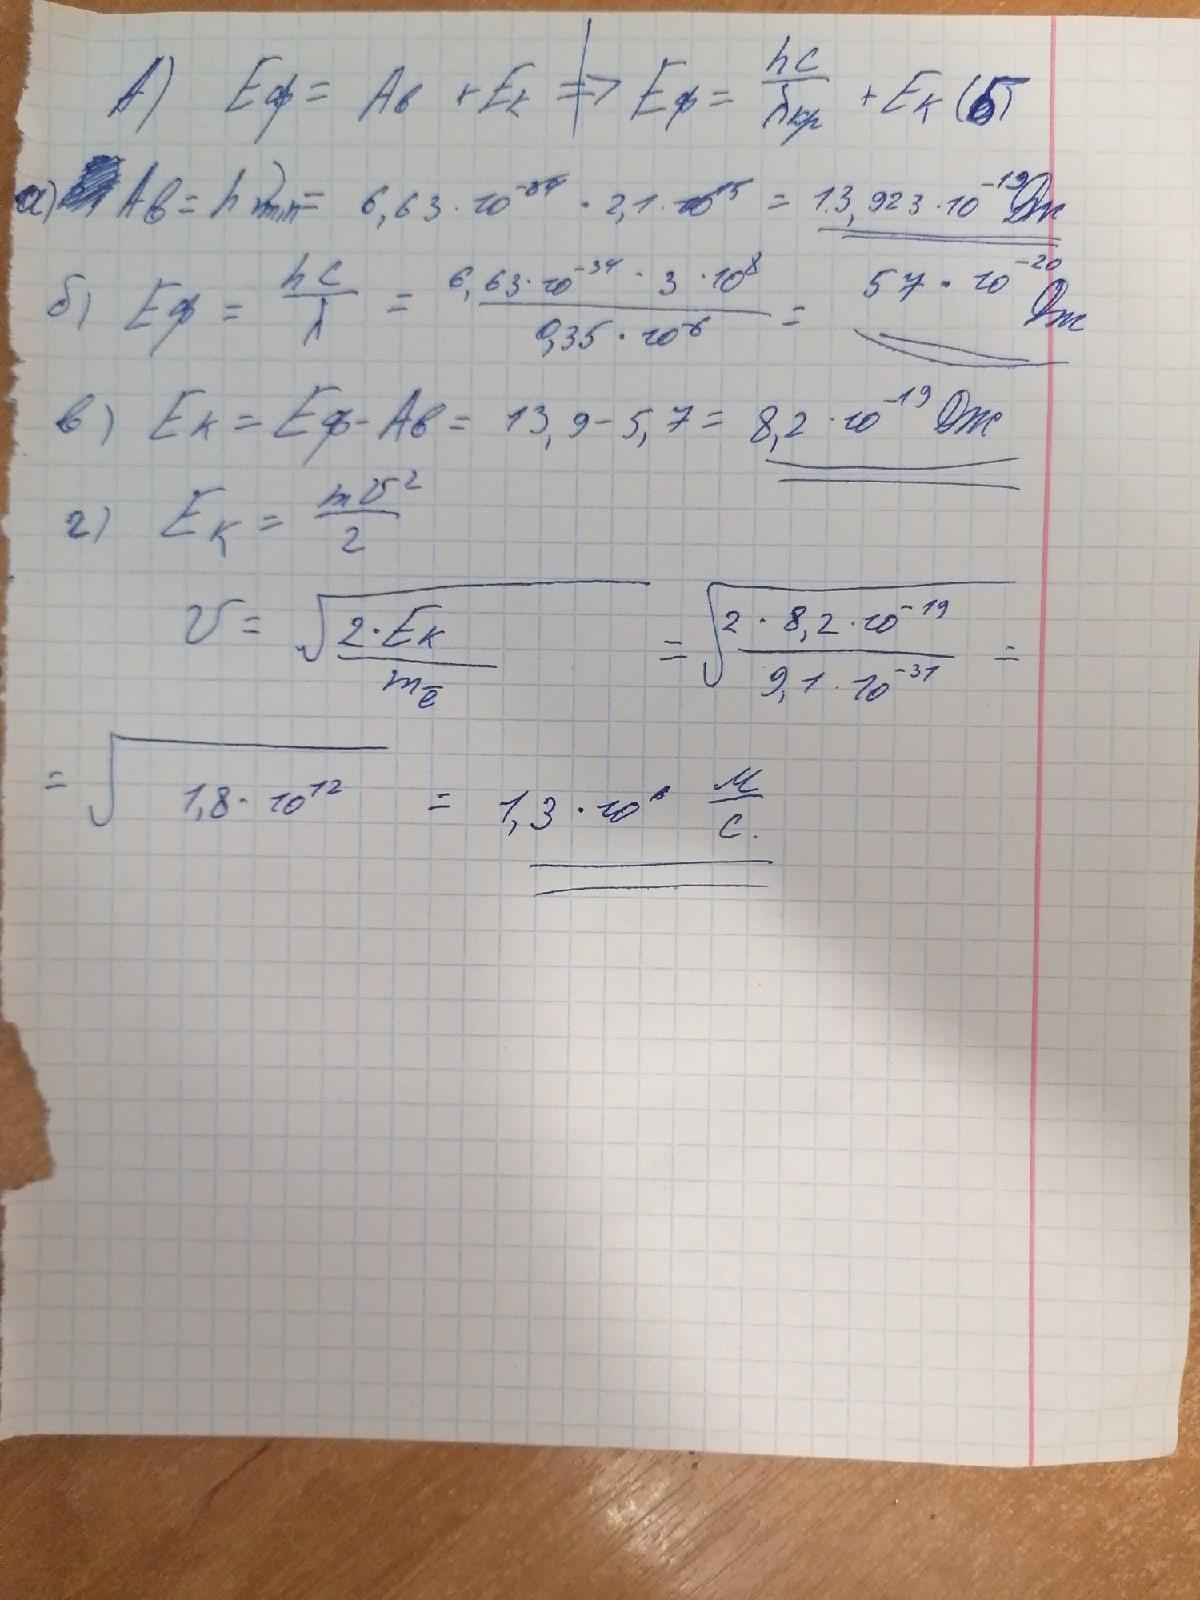 А) Eф = Aв + Eк => Eф = hc/λкр + Eк (б)
а) Aв = hνmin = 6,63·10⁻³⁴ · 2,1·10¹⁵ = 13,923·10⁻¹⁹ Дж
б) Eф = hc/λ = 6,63·10⁻³⁴ · 3·10⁸ / 0,35·10⁻⁶ = 57·10⁻²⁰ Дж
в) Eк = Eф - Aв = 13,9 - 5,7 = 8,2·10⁻¹⁹ Дж
г) Eк = mυ²/2
υ = √(2·Eк/mē) = √(2·8,2·10⁻¹⁹/9,1·10⁻³¹) =
= √(1,8·10¹²) = 1,3·10⁶ м/с.